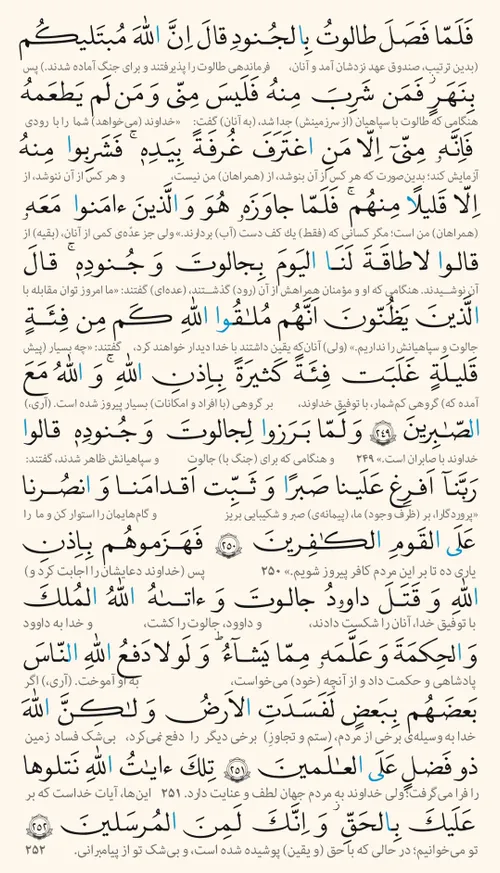 فَلَمّا فَصَلَ طالوتُ بِالجُنودِ قالَ اِنَّ اللهَ مُبتَليكُم
(بدین ترتیب، صندوق عهد نزدشان آمد و آنان، فرماندهی طالوت را پذیرفتند و برای جنگ آماده شدند.) پس
بِنَهَرٍ فَمَن شَرِبَ مِنهُ فَلَيسَ مِنّى وَ مَن لَم يَطعَمهُ
هنگامی که طالوت با سپاهیان (از سرزمینش) جدا شد، (به آنان) گفت: «خداوند (می‌خواهد) شما را با رودی
فَاِنَّهٗ مِنّىٓ اِلّا مَنِ اغتَرَفَ غُرفَةً بِيَدِهٖۚ فَشَرِبوا مِنهُ
آزمایش کند؛ بدین‌صورت که هر کس از آن بنوشد، از (همراهان) من نیست، و هر کس از آن ننوشد، از
اِلّا قَليلًا مِنهُمۚ فَلَمّا جاوَزَهٗ هُوَ وَ الَّذينَ ءامَنوا مَعَهٗ
(همراهان) من است؛ مگر کسانی که (فقط) یك کف دست (آب) بردارند.» ولی جز عدّه‌ی کمی از آنان، (بقیه) از
قالوا لا طاقَةَ لَنَا اليَومَ بِجالوتَ وَ جُنودِهٖۚ قالَ
آن نوشیدند. هنگامی که او و مؤمنان همراهش از آن (رود) گذشتند، (عده‌ای) گفتند: «ما امروز توان مقابله با
الَّذينَ يَظُنّونَ اَنَّهُم مُلٰقُوا اللهِ كَم مِن فِئَةٍ
جالوت و سپاهیانش را نداریم.» (ولی) آنان‌که یقین داشتند با خدا دیدار خواهند کرد، گفتند: «چه بسیار (پیش
قَليلَةٍ غَلَبَت فِئَةً كَثيرَةً بِاِذنِ اللهِۚ وَ اللهُ مَعَ
آمده که) گروهی کم‌شمار، با توفیق خداوند، بر گروهی (با افراد و امکانات) بسیار پیروز شده است. (آری،)
الصّٰبِرينَ ۲۴۹ وَ لَمّا بَرَزوا لِجالوتَ وَ جُنودِهٖ قالوا
خداوند با صابران است.» ۲۴۹ و هنگامی که برای (جنگ با) جالوت و سپاهیانش ظاهر شدند، گفتند:
رَبَّنآ اَفرِغ عَلَينا صَبرًا وَ ثَبِّت اَقدامَنا وَ انصُرنا
«پروردگارا، بر (ظرف وجود) ما، (پیمانه‌ی) صبر و شکیبایی بریز و گام‌هایمان را استوار کن و ما را
عَلَى القَومِ الكٰفِرينَ ۲۵۰ فَهَزَموهُم بِاِذنِ
یاری ده تا بر این مردم کافر پیروز شویم.» ۲۵۰ پس (خداوند دعایشان را اجابت کرد و)
اللهِ وَ قَتَلَ داوۥدُ جالوتَ وَ ءاتىٰهُ اللهُ المُلكَ
با توفیق خدا، آنان را شکست دادند، و داوود، جالوت را کشت، و خدا به داوود
وَ الحِكمَةَ وَ عَلَّمَهٗ مِمّا يَشآءُۗ وَ لَولا دَفعُ اللهِ النّاسَ
پادشاهی و حکمت داد و از آنچه (خود) می‌خواست، به او آموخت. (آری،) اگر
بَعضَهُم بِبَعضٍ لَفَسَدَتِ الاَرضُ وَ لٰكِنَّ اللهَ
خدا به وسیله‌ی برخی از مردم، (ستم و تجاوز) برخی دیگر را دفع نمی‌کرد، بی‌شک فساد زمین
ذو فَضلٍ عَلَى العٰلَمينَ ۲۵۱ تِلكَ ءايٰتُ اللهِ نَتلوها
را فرا می‌گرفت؛ ولی خداوند به مردم جهان لطف و عنایت دارد. ۲۵۱ این‌ها، آیات خداست که بر
عَلَيكَ بِالحَقِّۚ وَ اِنَّكَ لَمِنَ المُرسَلينَ ۲۵۲
تو می‌خوانیم؛ در حالی که با حق (و یقین) پوشیده شده است، و بی‌شك تو از پیامبرانی. ۲۵۲